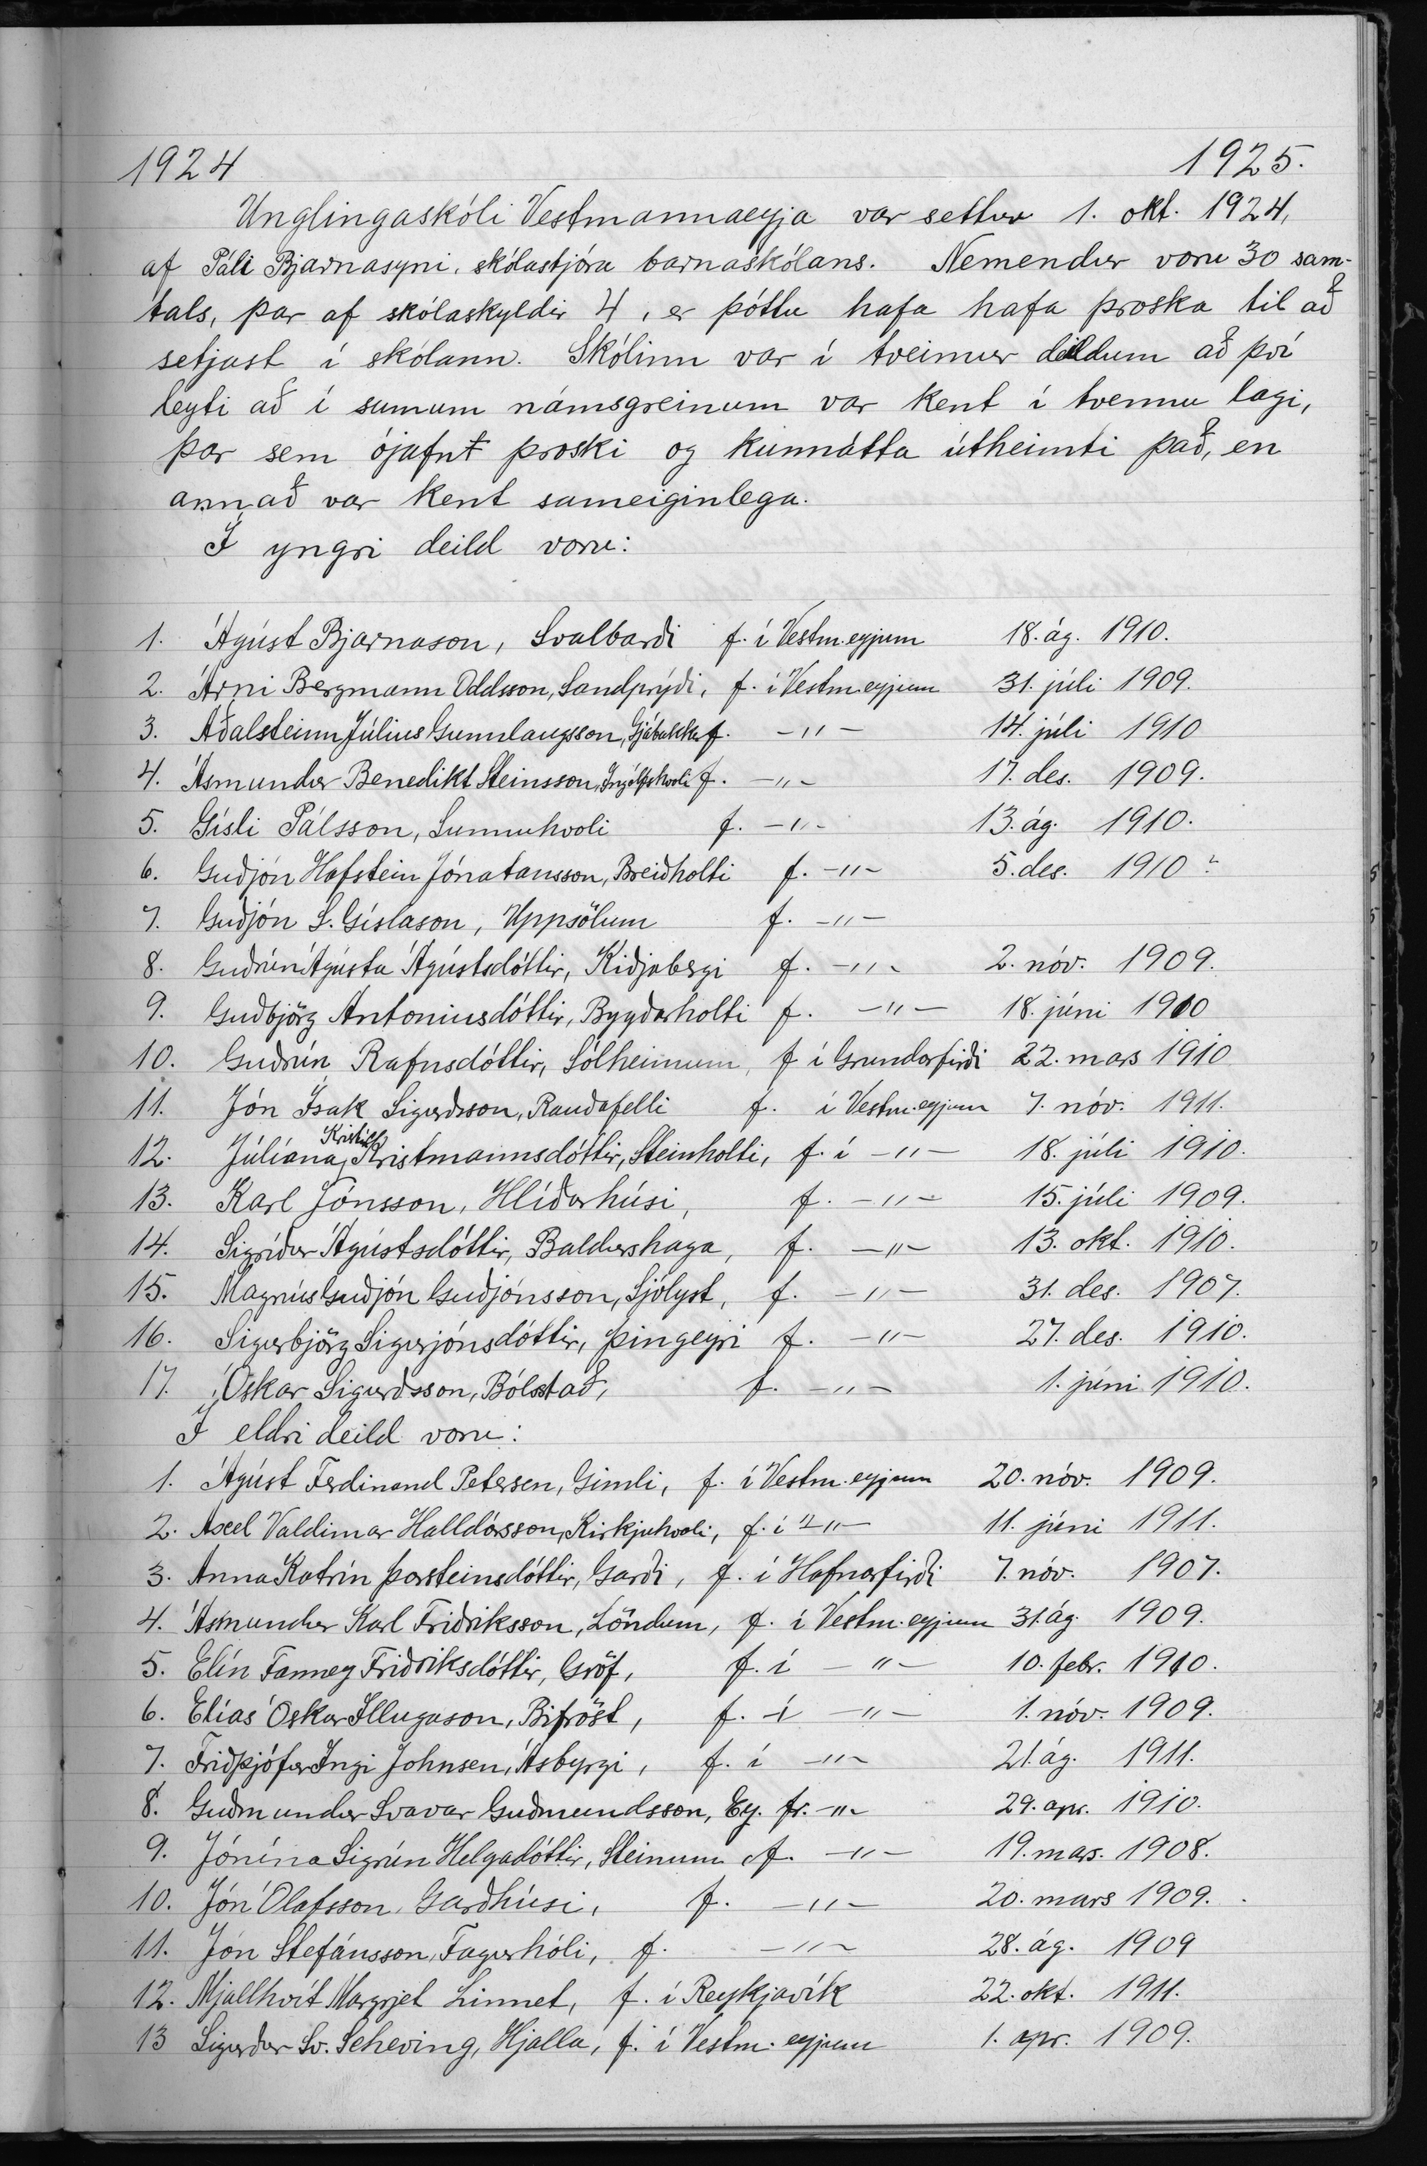 1924 1925.
Unglingaskóli Vestmannaeyja var settur 1. okt. 1924,
af Páli Bjarnasyni, skólastjóra barnaskólans. Nemendur voru 30 sam-
tals, þar af skólaskyldir 4, er þóttu hafa hafa þroska til að
setjast í skólann. Skólinn var í tveimur deildum að því
leyti að í sumum námsgreinum var kent í tvennu lagi,
þar sem ójafnt þroski og kunnátta útheimti það, en
annað var kent sameiginlega.
Í yngri deild voru:
1. Ágúst Bjarnason, Svalbarði f. í Vestm.eyjum 18. ág. 1910.
2. Árni Bergmann Oddsson, Sandprýði, f. í Vestm.eyjum 31. júli 1909.
3. Aðalsteinn Júlíus Gunnlaugsson, Gjábakka f. -"- 14. júli 1910
4. Ásmundur Benedikt Steinsson, Ingólfshvoli f. -"- 17. des. 1909.
5. Gísli Pálsson, Sunnuhvoli f. -"- 13. ág. 1910.
6. Guðjón Hafstein Jónatansson, Breiðholti f. -"- 5. des. 1910?
7. Guðjón S. Gíslason, Uppsölum f. -"-
8. Guðrún Ágústa Ágústsdóttir, Kiðjabergi f. -"- 2. nóv. 1909.
9. Guðbjörg Antoniusdóttir, Bygðarholti f. -"- 18. júni 1910
10. Guðrún Rafnsdóttir, Sólheimum, f í Grundarfirði 22. mars 1910
11. Jón Ísak Sigurðsson, Rauðafelli f. í Vestm.eyjum 7. nóv. 1911.
12. Júlíana Kristmannsdóttir, Steinholti, f. í -"- 18. júli 1910.
13. Karl Jónsson, Hlíðarhúsi, f. -"- 15. júli 1909.
14. Sigríður Ágústsdóttir, Baldurshaga, f. -"- 13. okt. 1910.
15. Magnús Guðjón Guðjónsson, Sjólyst, f. -"- 31. des. 1907.
16. Sigurbjörg Sigurjónsdóttir, Þingeyri f. -"- 27. des. 1910.
17. Óskar Sigurðsson, Bólstað, f. -"- 1. júni 1910.
Í eldri deild voru:
1. Ágúst Ferdinand Petersen, Gimli, f. í Vestm.eyjum 20. nóv. 1909.
2. Axel Valdimar Halldórsson, Kirkjuhvoli, f. í -"- 11. júni 1911.
3. Anna Katrín Þorsteinsdóttir, Garði, f. í Hafnarfirði 7. nóv. 1907.
4. Ásmundur Karl Friðriksson, Löndum, f. í Vestm.eyjum 31. ág. 1909.
5. Elín Fanney Friðriksdóttir, Gröf, f. í -"- 10. febr. 1910.
6. Elías Óskar Illugason, Bifröst, f. í -"- 1. nóv. 1909.
7. Friðþjófur Ingi Johnsen, Ásbyrgi, f. í -"- 21. ág. 1911.
8. Guðmundur Svavar Guðmundsson, Ey. fr. -"- 29. apr. 1910.
9. Jónína Sigrún Helgadóttir, Steinum, f. -"- 19. mars. 1908.
10. Jón Ólafsson, Garðhúsi, f. -"- 20. mars 1909.
11. Jón Stefánsson, Fagurhóli, f. -"- 28. ág. 1909
12. Mjallhvít Margrjet Linnet, f. í Reykjavík 22. okt. 1911.
13 Sigurður Sv. Scheving, Hjalla, f. í Vestm.eyjum 1. apr. 1909.